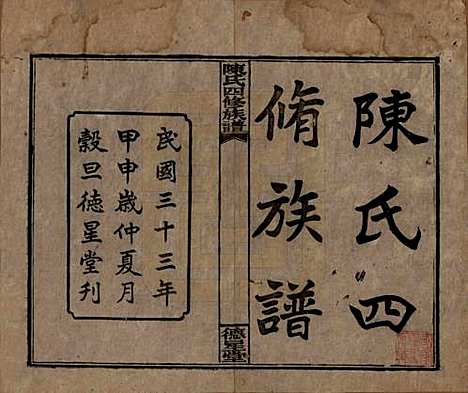 陳氏四
脩族譜
陳氏四修族譜
德星堂
民國三十三年
甲申歲仲夏月
穀旦德星堂刊